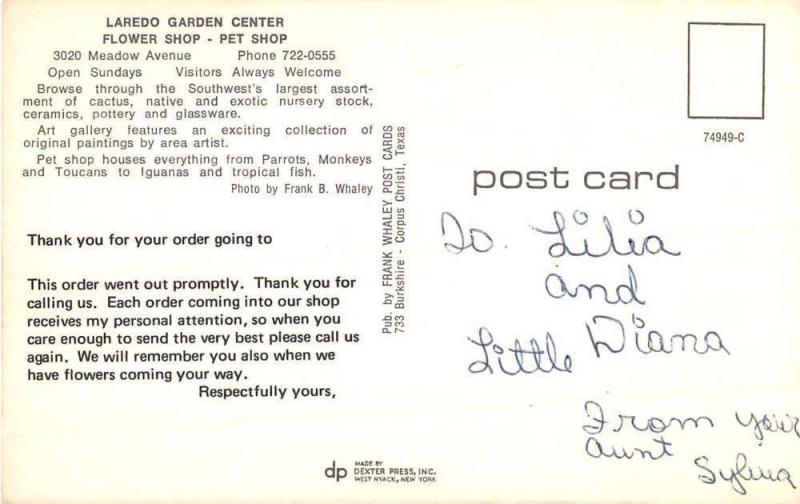 LAREDO GARDEN CENTER
FLOWER SHOP - PET SHOP
3020 Meadow Avenue Phone 722-0555
Open Sundays Visitors Always Welcome
Browse through the Southwest's largest assort-
ment of cactus, native and exotic nursery stock,
ceramics, pottery and glassware.
Art gallery features an exciting collection of
original paintings by area artist.
Pet shop houses everything from Parrots, Monkeys
and Toucans to Iguanas and tropical fish.
Photo by Frank B. Whaley
Thank you for your order going to
This order went out promptly. Thank you for
calling us. Each order coming into our shop
receives my personal attention, so when you
care enough to send the very best please call us
again. We will remember you also when we
have flowers coming your way.
Respectfully yours,
Pub. by FRANK WHALEY POST CARDS
733 Burkshire - Corpus Christi, Texas
dp
MADE BY
DEXTER PRESS, INC.
WEST NYACK, NEW YORK
74949-C
post card
To. Lilia
and
Little Diana
From your
aunt
Sylvia